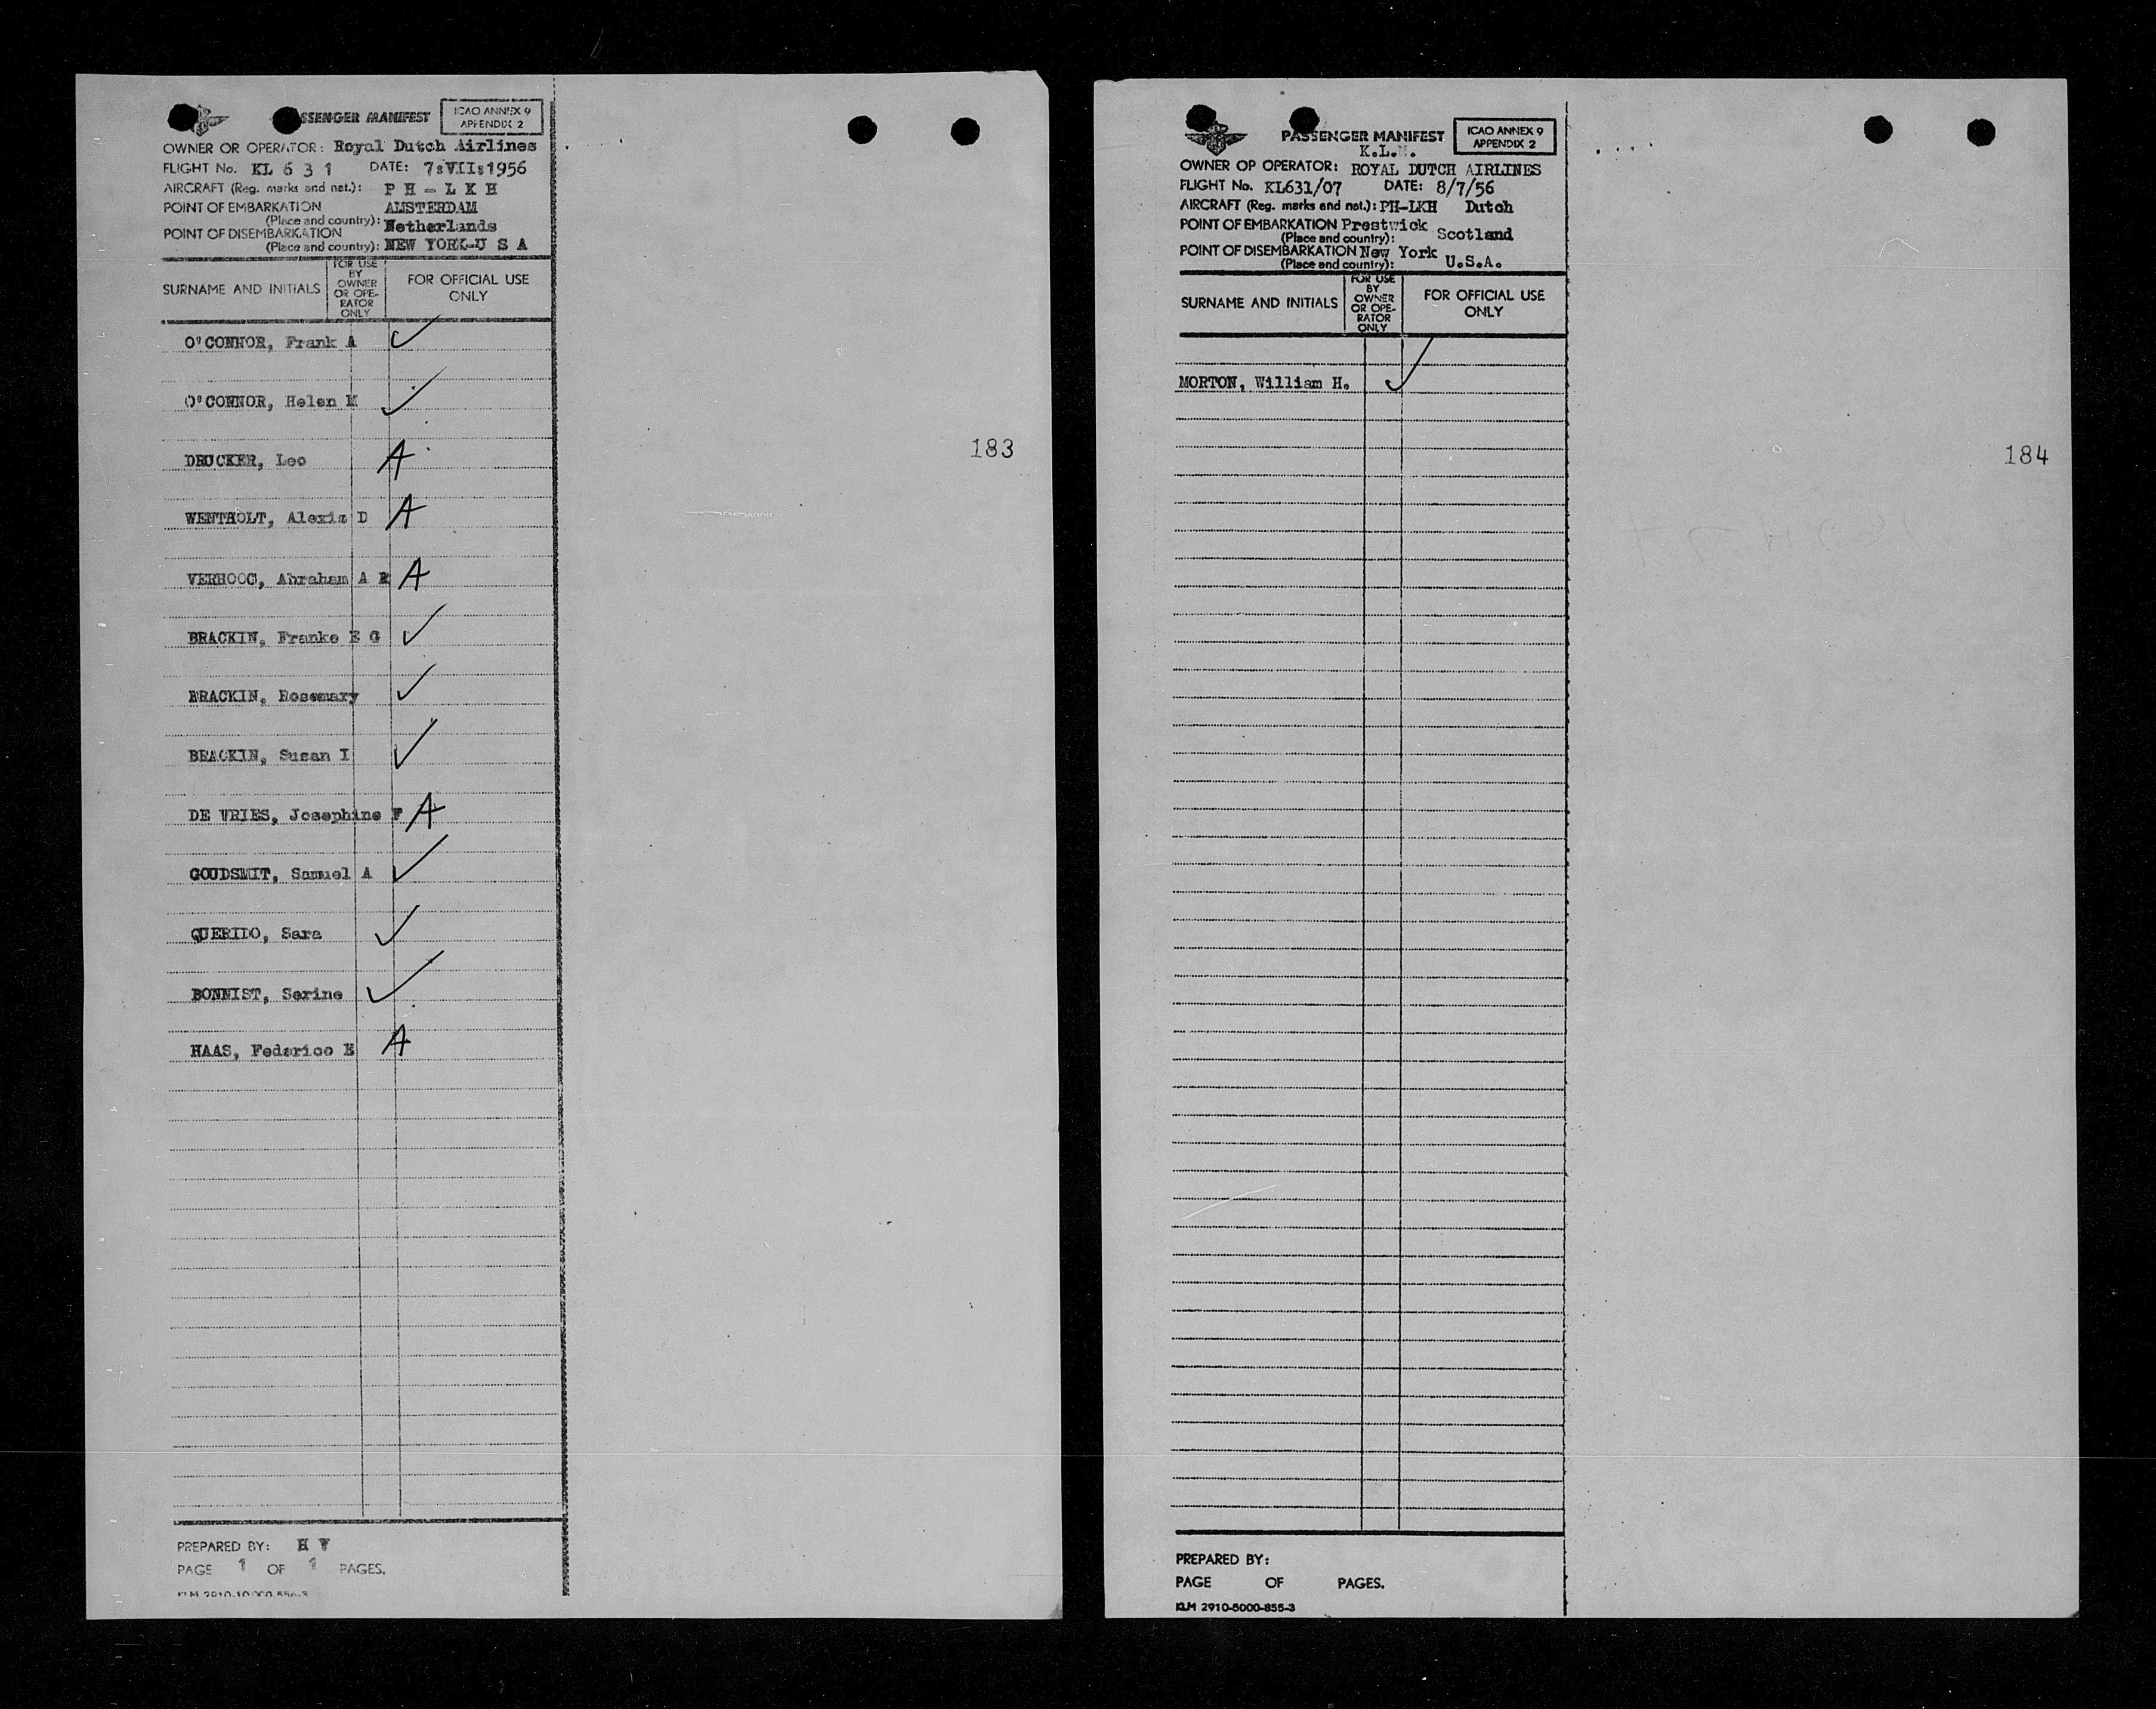 PASSENGER MANIFEST
ICAO ANNEX 9
APPENDIX 2
OWNER OR OPERATOR: Royal Dutch Airlines
FLIGHT No. KL 6 3 1 DATE: 7:VII:1956
AIRCRAFT (Reg. marks and nat.): P H - L K H
POINT OF EMBARKATION AMSTERDAM
(Place and country): Netherlands
POINT OF DISEMBARKATION
(Place and country): NEW YORK-U S A
SURNAME AND INITIALS
FOR USE
BY
OWNER
OR OPE-
RATOR
ONLY
FOR OFFICIAL USE
ONLY
O'CONNOR, Frank A ✓
O'CONNOR, Helen M ✓
DRUCKER, Leo A
WENTHOLT, Alexis D A
VERHOOG, Abraham A R A
BRACKIN, Franke E G ✓
BRACKIN, Rosemary ✓
BRACKIN, Susan I ✓
DE VRIES, Josephine F A
GOUDSMIT, Samuel A ✓
QUERIDO, Sara ✓
BONNIST, Serine ✓
HAAS, Federico E A
PREPARED BY: H V
PAGE 1 OF 1 PAGES.
KLM 2910-10.000-556-3
183
PASSENGER MANIFEST
K.L.M.
ICAO ANNEX 9
APPENDIX 2
OWNER OP OPERATOR: ROYAL DUTCH AIRLINES
FLIGHT No. KL631/07 DATE: 8/7/56
AIRCRAFT (Reg. marks and nat.): PH-LKH Dutch
POINT OF EMBARKATION Prestwick
(Place and country): Scotland
POINT OF DISEMBARKATION New York
(Place and country): U.S.A.
SURNAME AND INITIALS
FOR USE
BY
OWNER
OR OPE-
RATOR
ONLY
FOR OFFICIAL USE
ONLY
MORTON, William H. ✓
PREPARED BY:
PAGE OF PAGES.
KLM 2910-5000-855-3
184